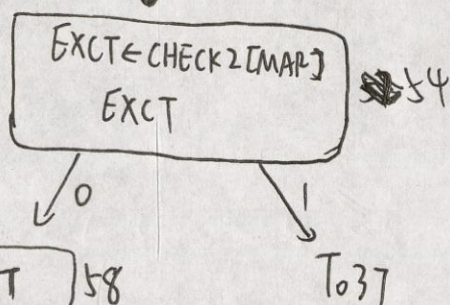 EXCT←CHECK2[MAR]
EXCT
54
0
1
T
58
To37